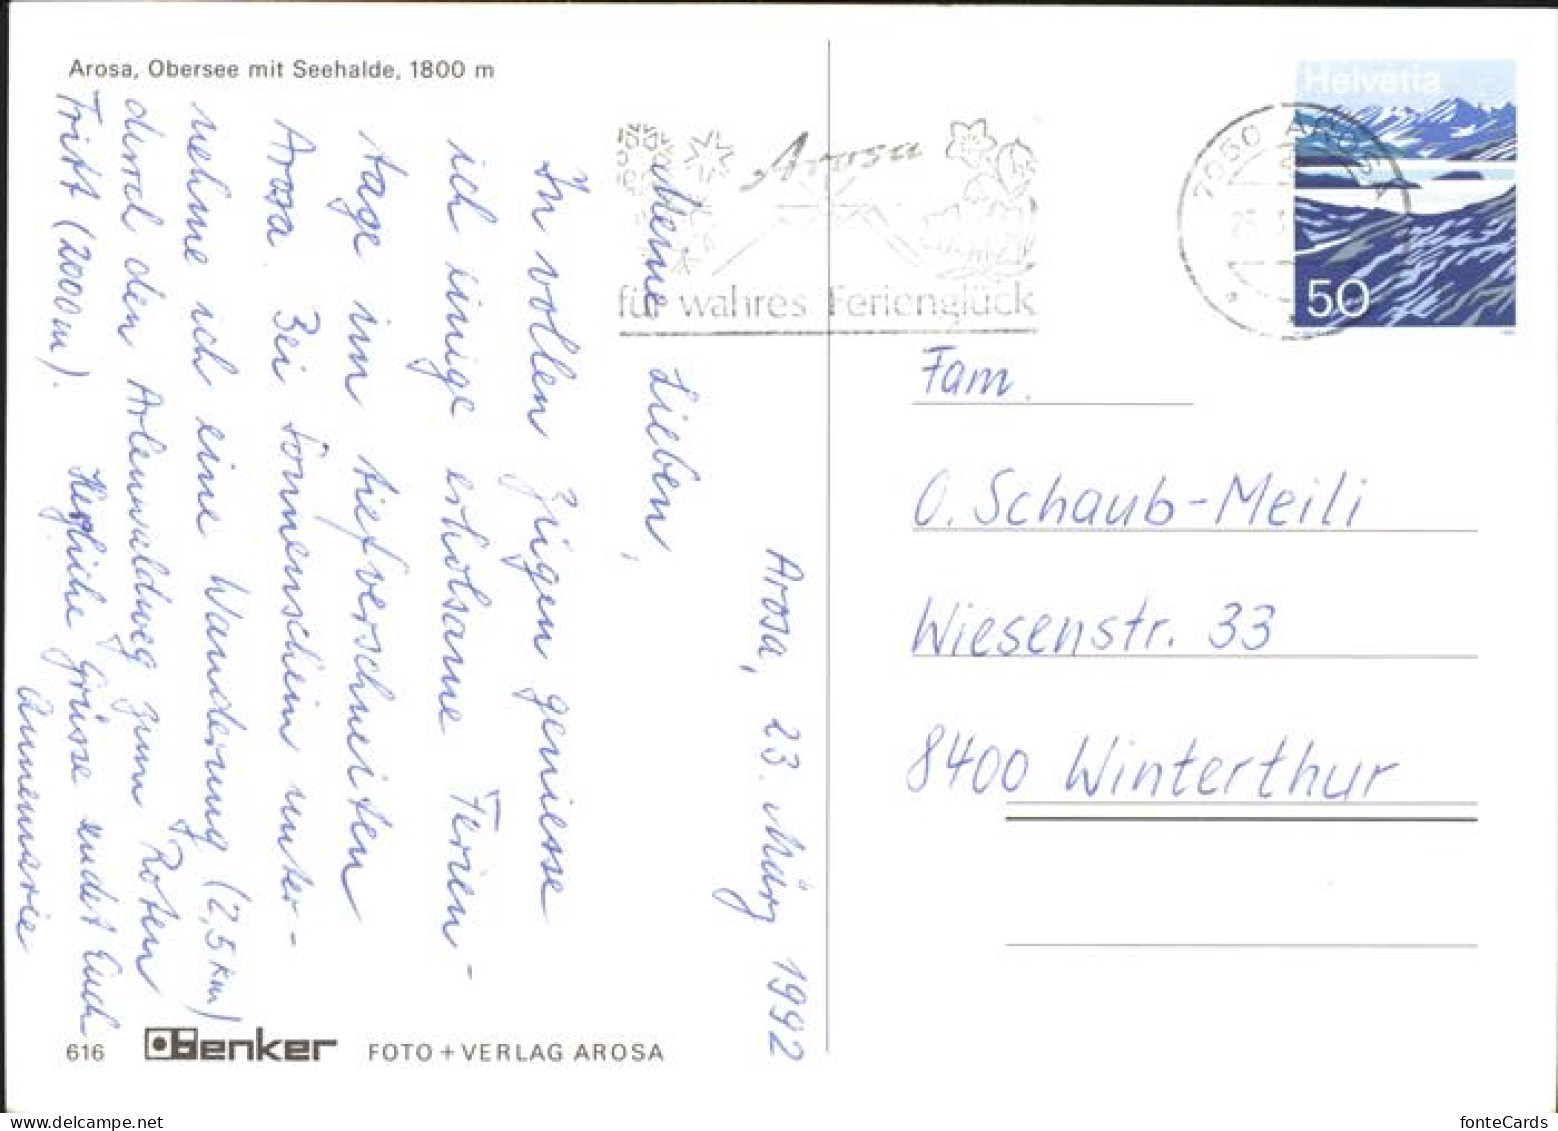 Arosa, Obersee mit Seehalde, 1800 m
Arosa, 23. März 1992
Meine Lieben,
In vollen Zügen geniesse
ich einige erholsame Ferien-
tage im tiefverschneiten
Arosa. Bei Sonnenschein unter-
nehme ich eine Wanderung (2,5 km)
durch den Arlenwaldweg zum Roten
Tritt (2000 m). Herzliche Grüsse sendet Euch
Annemarie
616 Benker FOTO + VERLAG AROSA
Arosa
für wahres Ferienglück
7050 AROSA
Helvetia
50
Fam.
O. Schaub-Meili
Wiesenstr. 33
8400 Winterthur
fonteCards